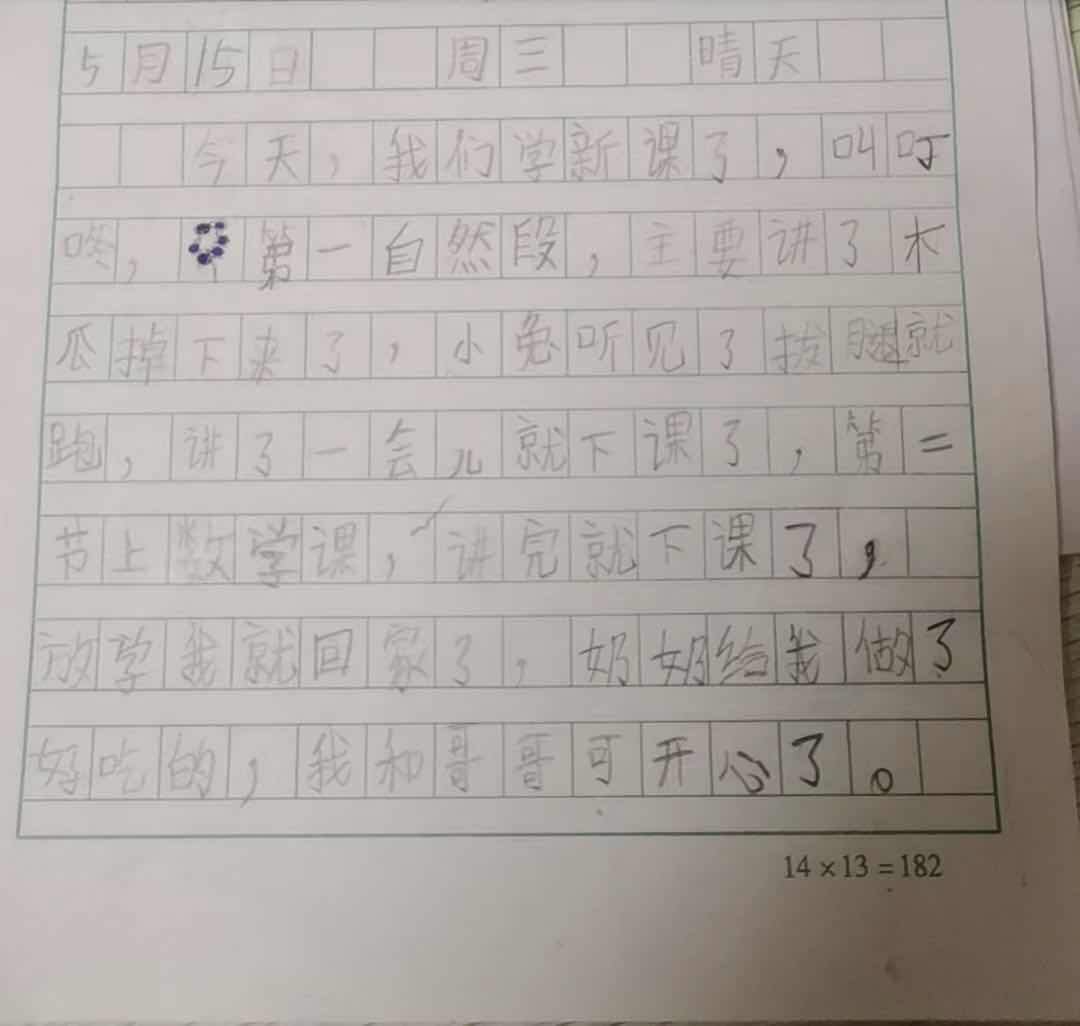 5月15日 周三 晴天
今天，我们学新课了，叫叮
咚，第一自然段，主要讲了木
瓜掉下来了，小兔听见了拔腿就
跑，讲了一会儿就下课了，第二
节上数学课，讲完就下课了，
放学我就回家了，奶奶给我做了
好吃的，我和哥哥可开心了。
14×13=182